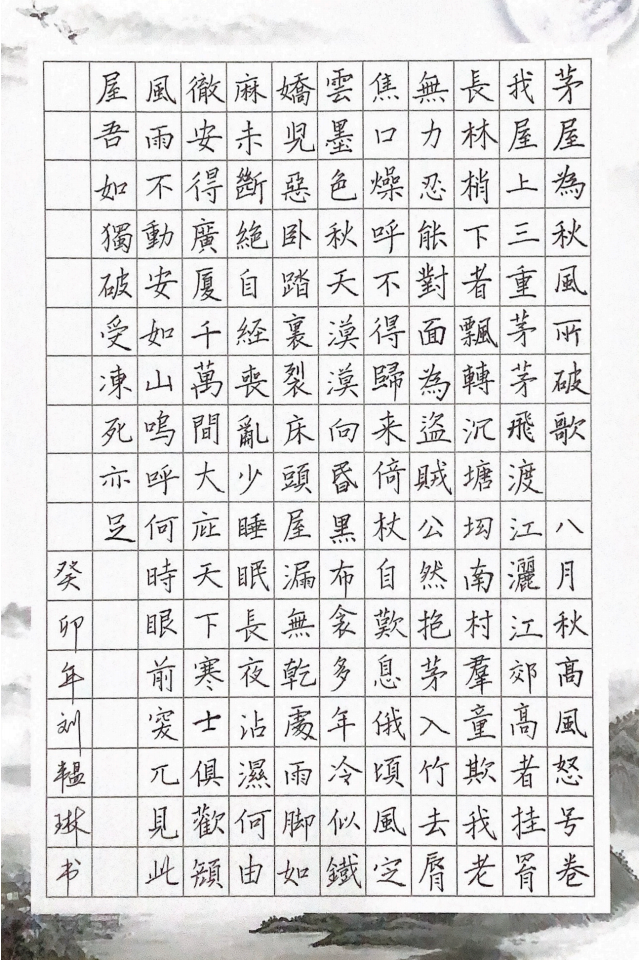 茅屋為秋風所破歌 八月秋高風怒号卷
我屋上三重茅茅飛渡江灑江郊高者挂罥
長林梢下者飄轉沉塘坳南村羣童欺我老
無力忍能對面為盜賊公然抱茅入竹去脣
焦口燥呼不得歸来倚杖自歎息俄頃風定
雲墨色秋天漠漠向昏黑布衾多年冷似鐵
嬌児惡卧踏裏裂床頭屋漏無乾處雨脚如
麻未斷絶自経喪亂少睡眠長夜沾濕何由
徹安得廣厦千萬間大庇天下寒士俱歡顔
風雨不動安如山嗚呼何時眼前突兀見此
屋吾如獨破受凍死亦足
癸卯年刘韫琳书